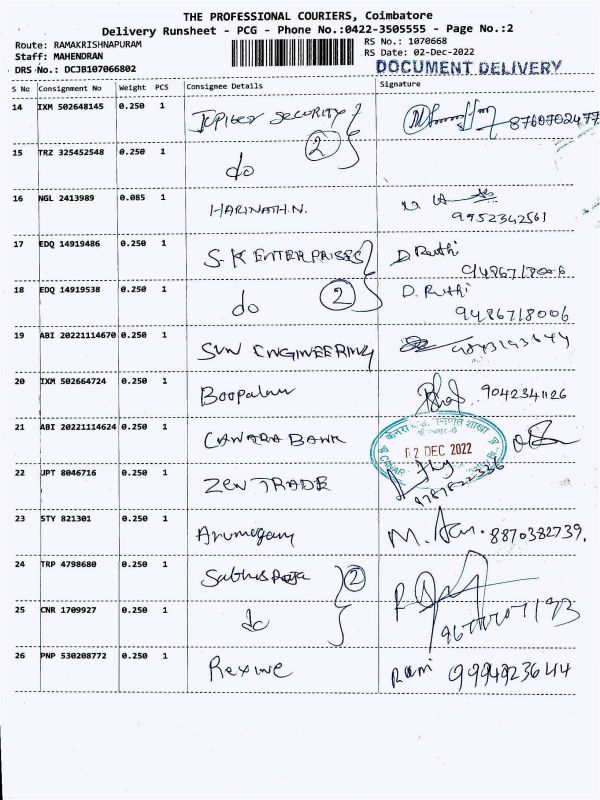 THE PROFESSIONAL COURIERS, Coimbatore
Delivery Runsheet - PCG - Phone No.:0422-3505555 - Page No.:2
Route: RAMAKRISHNAPURAM
RS No.: 1070668
Staff: MAHENDRAN
RS Date: 02-Dec-2022
DRS No.: DCJB107066802
DOCUMENT DELIVERY
S No Consignment No Weight PCS Consignee Details Signature
14 IXM 502648145 0.250 1 JUPITER SECURITY 8760702477
2
15 TRZ 325452548 0.250 1 do
16 NGL 2413989 0.085 1 HARINATH.N. 9952342561
17 EDQ 14919486 0.250 1 S.K ENTERPRISES D. Ruthi
9486718006
18 EDQ 14919538 0.250 1 do 2 D. Ruthi
9486718006
19 ABI 20221114670 0.250 1 SVN ENGINEERING 9843193644
20 IXM 502664724 0.250 1 Boopalan 9042341126
21 ABI 20221114624 0.250 1 CANARA BANK
02 DEC 2022
22 JPT 8046716 0.250 1 ZEN TRADE
23 STY 821301 0.250 1 Arumugam 8870382739.
24 TRP 4798680 0.250 1 2
25 CNR 1709927 0.250 1 do
26 PNP 530208772 0.250 1 Rexine Ram 9994923644